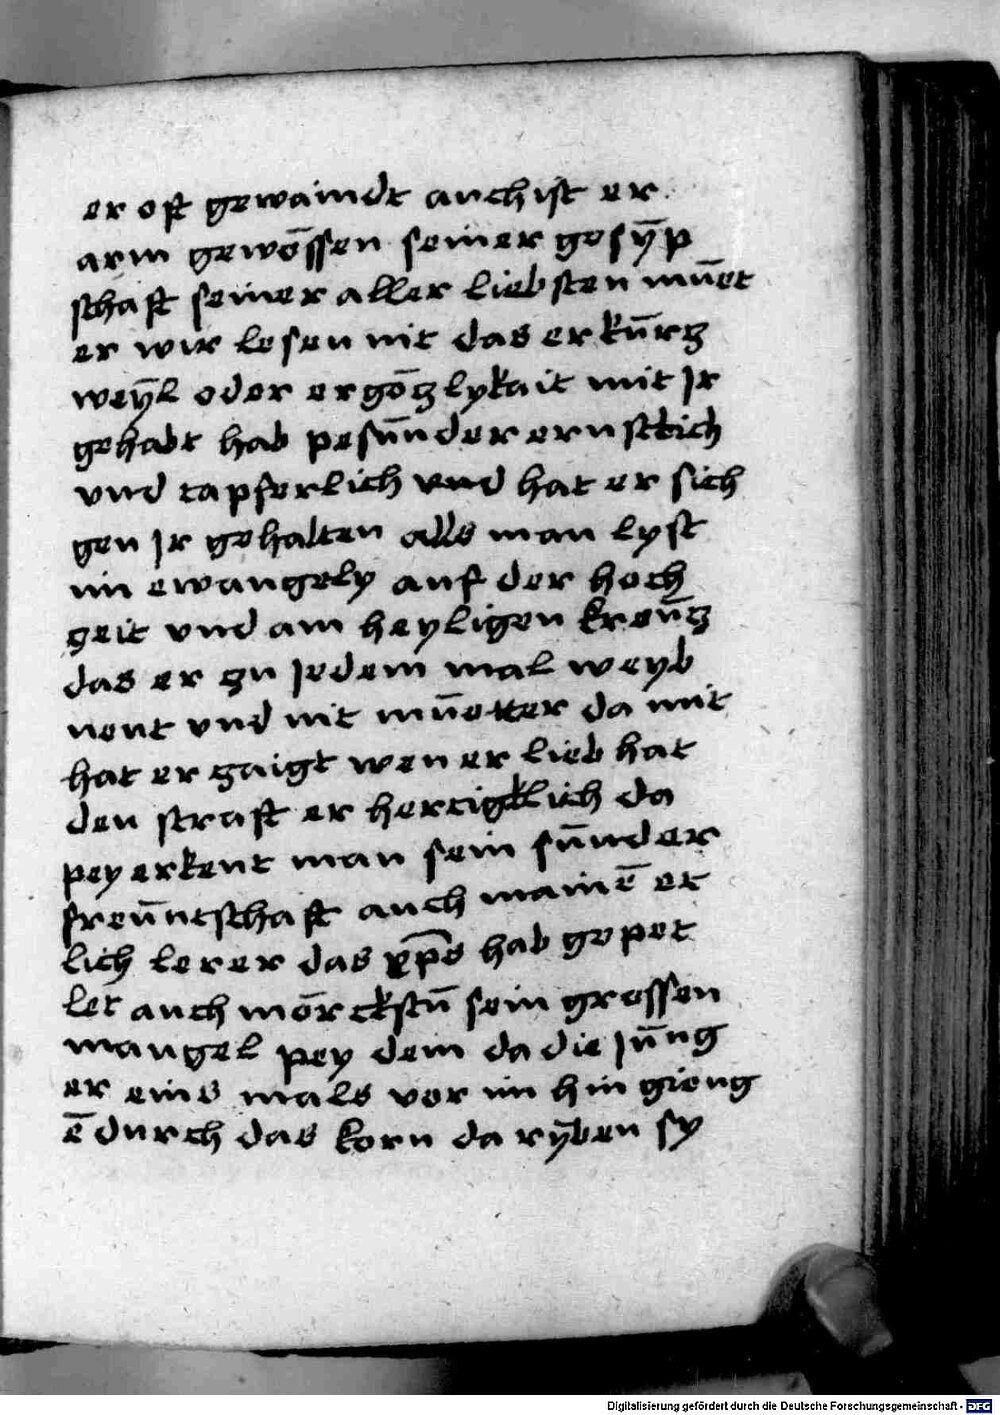 er oft gewaindt auch ist er
arm gewössen seiner gesÿp
schaft seiner aller liebsten mūet
er wir lesen nit das er kūrtz
weÿl oder ergötzlykait mit Jr
gehabt hab pesūnder ernstlich
vnd tapferlich vnd hat er sich
gen Jr gehalten alls man lyst
im ewangely auf der hoch
zeit vnd am heyligen kreūtz
das er zu Jedem mal weyb
nent vnd nit mūetter da mit
hat er zaigt wen er lieb hat
den straft er hertigklich da
pey erkent man sein sūnder
freūntschaft auch mainē et
lich lerer das xp̄s hab gepet
let auch mörckstū sein grossen
mangel pey dem da die Jūng
er eins mals vor im hin gieng
ē durch das korn da rÿben sy
Digitalisierung gefördert durch die Deutsche Forschungsgemeinschaft - DFG